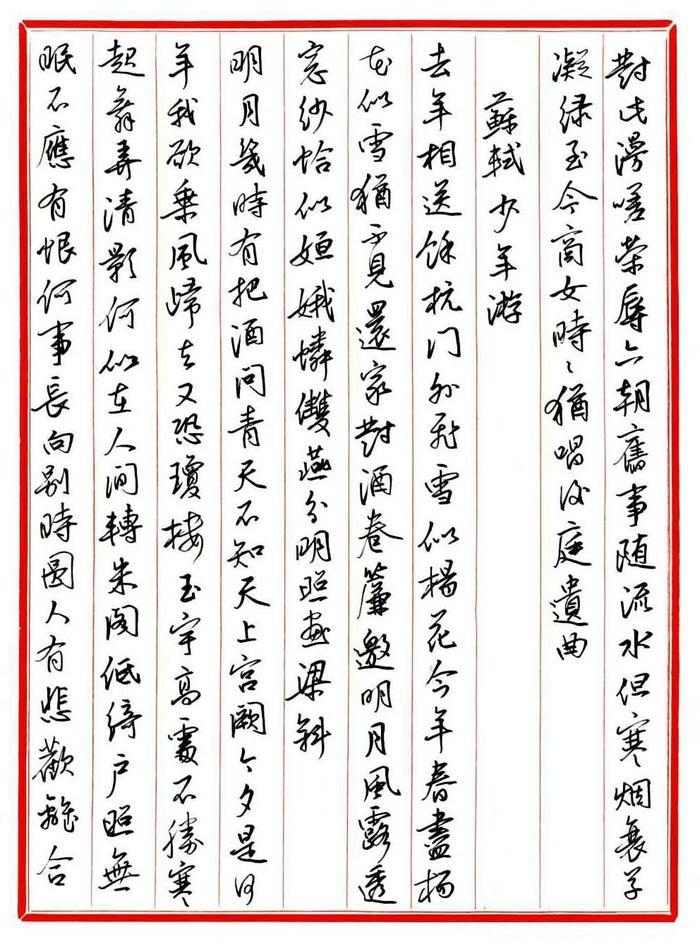 對此漫嗟榮辱六朝舊事随流水但寒烟衰草
凝绿至今商女時〻猶唱後庭遺曲
蘇軾少年游
去年相送馀杭门外飛雪似楊花今年春盡楊
花似雪猶不見還家對酒卷簾邀明月風露透
窓纱恰似姮娥憐雙燕分明照画梁斜
明月幾時有把酒問青天不知天上宫阙今夕是何
年我欲乗風歸去又恐瓊楼玉宇高處不勝寒
起舞弄清影何似在人间轉朱阁低绮户照無
眠不應有恨何事長向别時圆人有悲歡離合